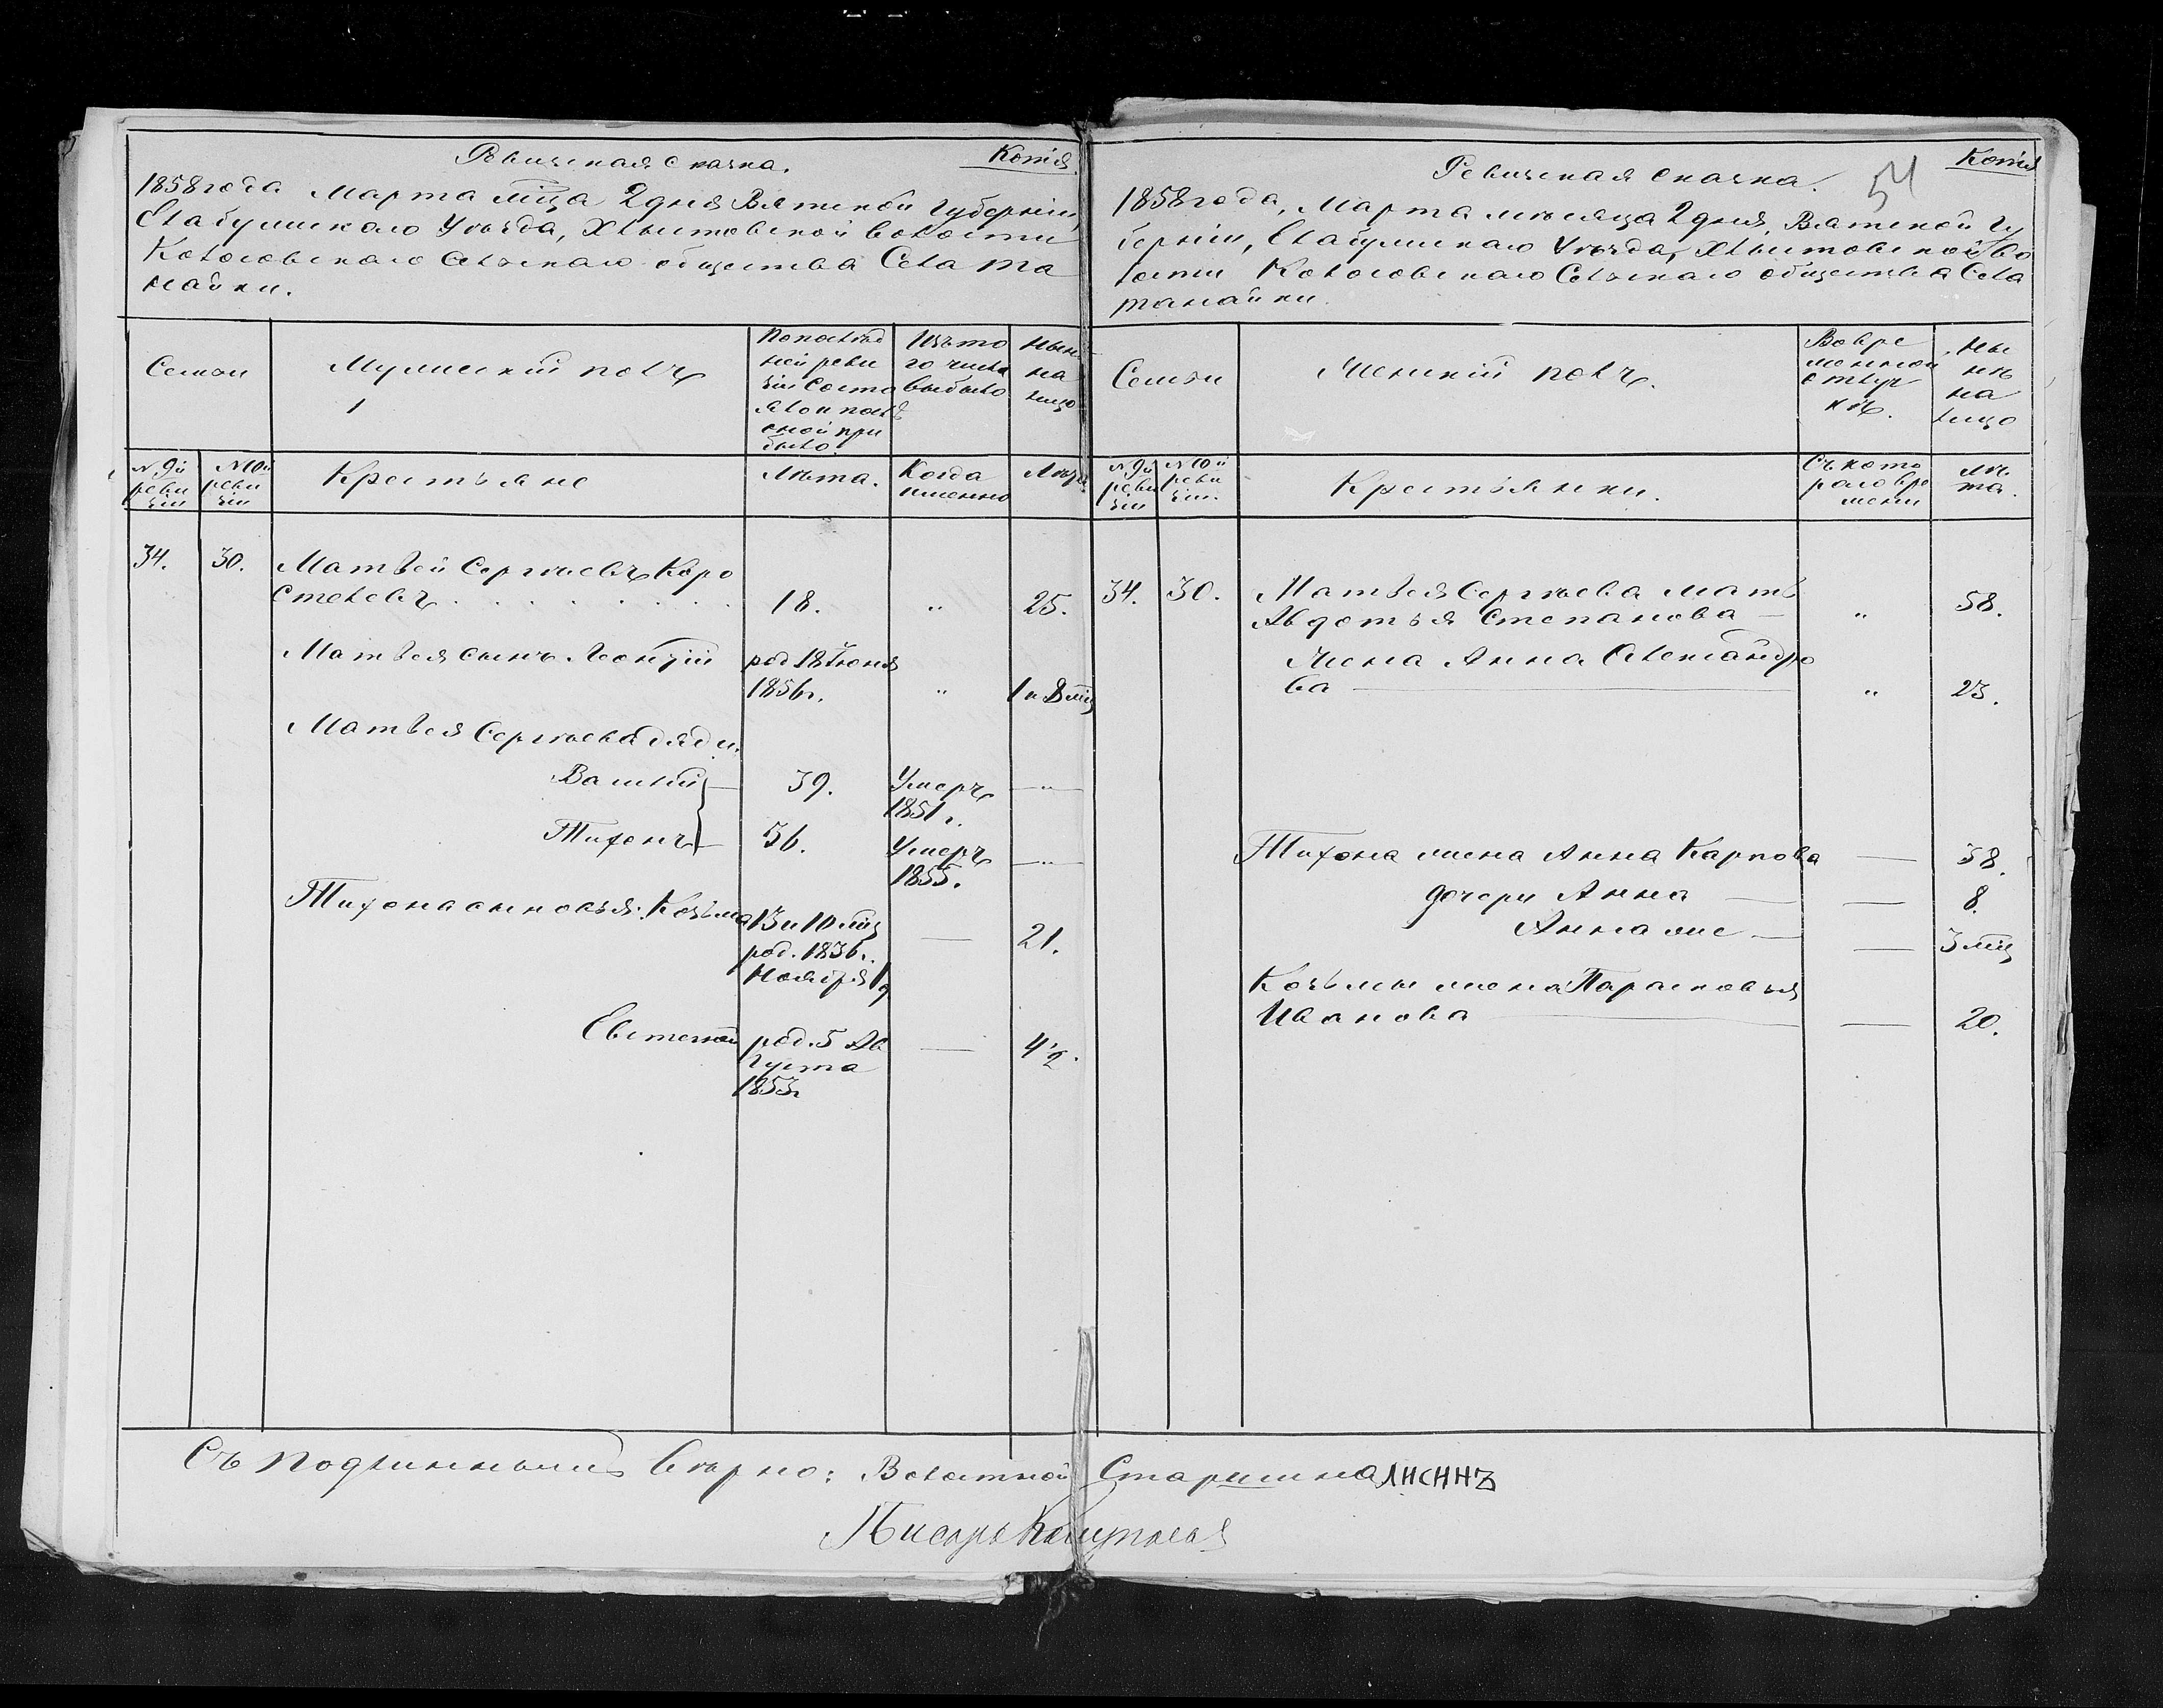 Ревизская сказка. Копія
1858 года Марта мца 2 дня Вятской Губерніи,
Елабужскаго Уѣзда, Хлыстовской волости
Кологовскаго Сельскаго общества Села Та
найки.
Семьи
Мужеский полъ
1
По послѣд
ней реви
зіи состо
яло и послѣ
оной при
было
Изъ то
го числа
выбыло
Нын
на
лицо
№ 9й
реви
зіи
№ 10й
реви
зіи
Крестьяне
Лѣта.
Когда
именно
Лѣта
34. 30. Матвей Сергѣевъ Коро
стелевъ . . . . . . . . 18. " 25.
Матвея сынъ Леонтій род 18 Іюня
1856 г. " 1 и 8 мц
Матвея Сергѣева дяди
Василій — 39. Умеръ — " —
1851 г.
Тихонъ — 56. Умеръ — " —
1855.
Тихона сыновья: Козьма 13 и 10 мц — 21.
род. 1836 г.
Ноября 1
Евстегней род. 5 Ав — 4 1/2.
густа
1853 г
Ревизская сказка. 54 Копія
1858 года, Марта мѣсяца 2 дня, Вятской Гу
берніи, Елабужскаго Уѣзда, Хлыстовской во
лости Кологовскаго Сельскаго общества Села
танайки.
Семьи
Женскій полъ.
Во вре
менной
отлуч
кѣ.
Ны
нѣ
на
лицо
№ 9й
реви
зіи
№ 10й
реви
зіи.
Крестьянки.
Съ кото
раго вре
мени
Лѣ
та.
34. 30. Матвея Сергѣева мать
Авдотья Степанова — " 58.
Жена Анна Александро
ва — " 23.
Тихона жена Анна Карпова — 58.
дочери Анна — — 8.
Анна же — — 3 мц
Козьмы жена Парасковья
Иванова — — 20.
Съ подлиннымъ вѣрно: Волостной Старшина ЛИСИНЪ
Писарь